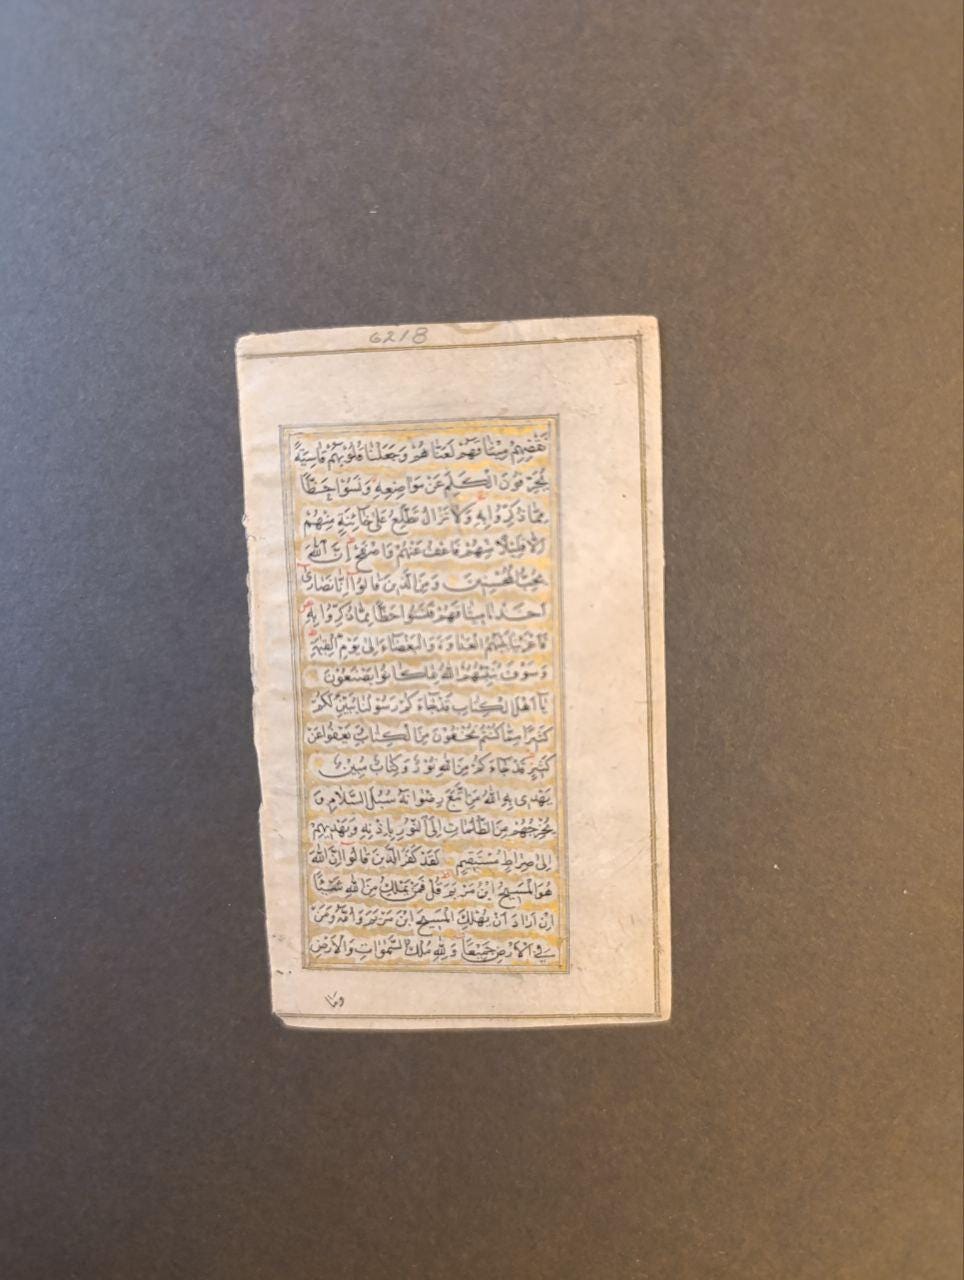 6218
نَقْضِهِمْ مِيثَاقَهُمْ لَعَنَّاهُمْ وَجَعَلْنَا قُلُوبَهُمْ قَاسِيَةً
يُحَرِّفُونَ الْكَلِمَ عَنْ مَوَاضِعِهِ وَنَسُوا حَظًّا
مِمَّا ذُكِّرُوا بِهِ وَلَا تَزَالُ تَطَّلِعُ عَلَى خَائِنَةٍ مِنْهُمْ
إِلَّا قَلِيلًا مِنْهُمْ فَاعْفُ عَنْهُمْ وَاصْفَحْ إِنَّ اللَّهَ
يُحِبُّ الْمُحْسِنِينَ وَمِنَ الَّذِينَ قَالُوا إِنَّا نَصَارَى
أَخَذْنَا مِيثَاقَهُمْ فَنَسُوا حَظًّا مِمَّا ذُكِّرُوا بِهِ
فَأَغْرَيْنَا بَيْنَهُمُ الْعَدَاوَةَ وَالْبَغْضَاءَ إِلَى يَوْمِ الْقِيٰمَةِ
وَسَوْفَ يُنَبِّئُهُمُ اللَّهُ بِمَا كَانُوا يَصْنَعُونَ
يَا أَهْلَ الْكِتَابِ قَدْ جَاءَكُمْ رَسُولُنَا يُبَيِّنُ لَكُمْ
كَثِيرًا مِمَّا كُنْتُمْ تُخْفُونَ مِنَ الْكِتَابِ وَيَعْفُوا عَنْ
كَثِيرٍ قَدْ جَاءَكُمْ مِنَ اللَّهِ نُورٌ وَكِتَابٌ مُبِينٌ
يَهْدِي بِهِ اللَّهُ مَنِ اتَّبَعَ رِضْوَانَهُ سُبُلَ السَّلَامِ وَ
يُخْرِجُهُمْ مِنَ الظُّلُمَاتِ إِلَى النُّورِ بِإِذْنِهِ وَيَهْدِيهِمْ
إِلَى صِرَاطٍ مُسْتَقِيمٍ لَقَدْ كَفَرَ الَّذِينَ قَالُوا إِنَّ اللَّهَ
هُوَ الْمَسِيحُ ابْنُ مَرْيَمَ قُلْ فَمَنْ يَمْلِكُ مِنَ اللَّهِ شَيْئًا
إِنْ أَرَادَ أَنْ يُهْلِكَ الْمَسِيحَ ابْنَ مَرْيَمَ وَأُمَّهُ وَمَنْ
فِي الْأَرْضِ جَمِيعًا وَلِلَّهِ مُلْكُ السَّمٰوَاتِ وَالْأَرْضِ
وَمَا